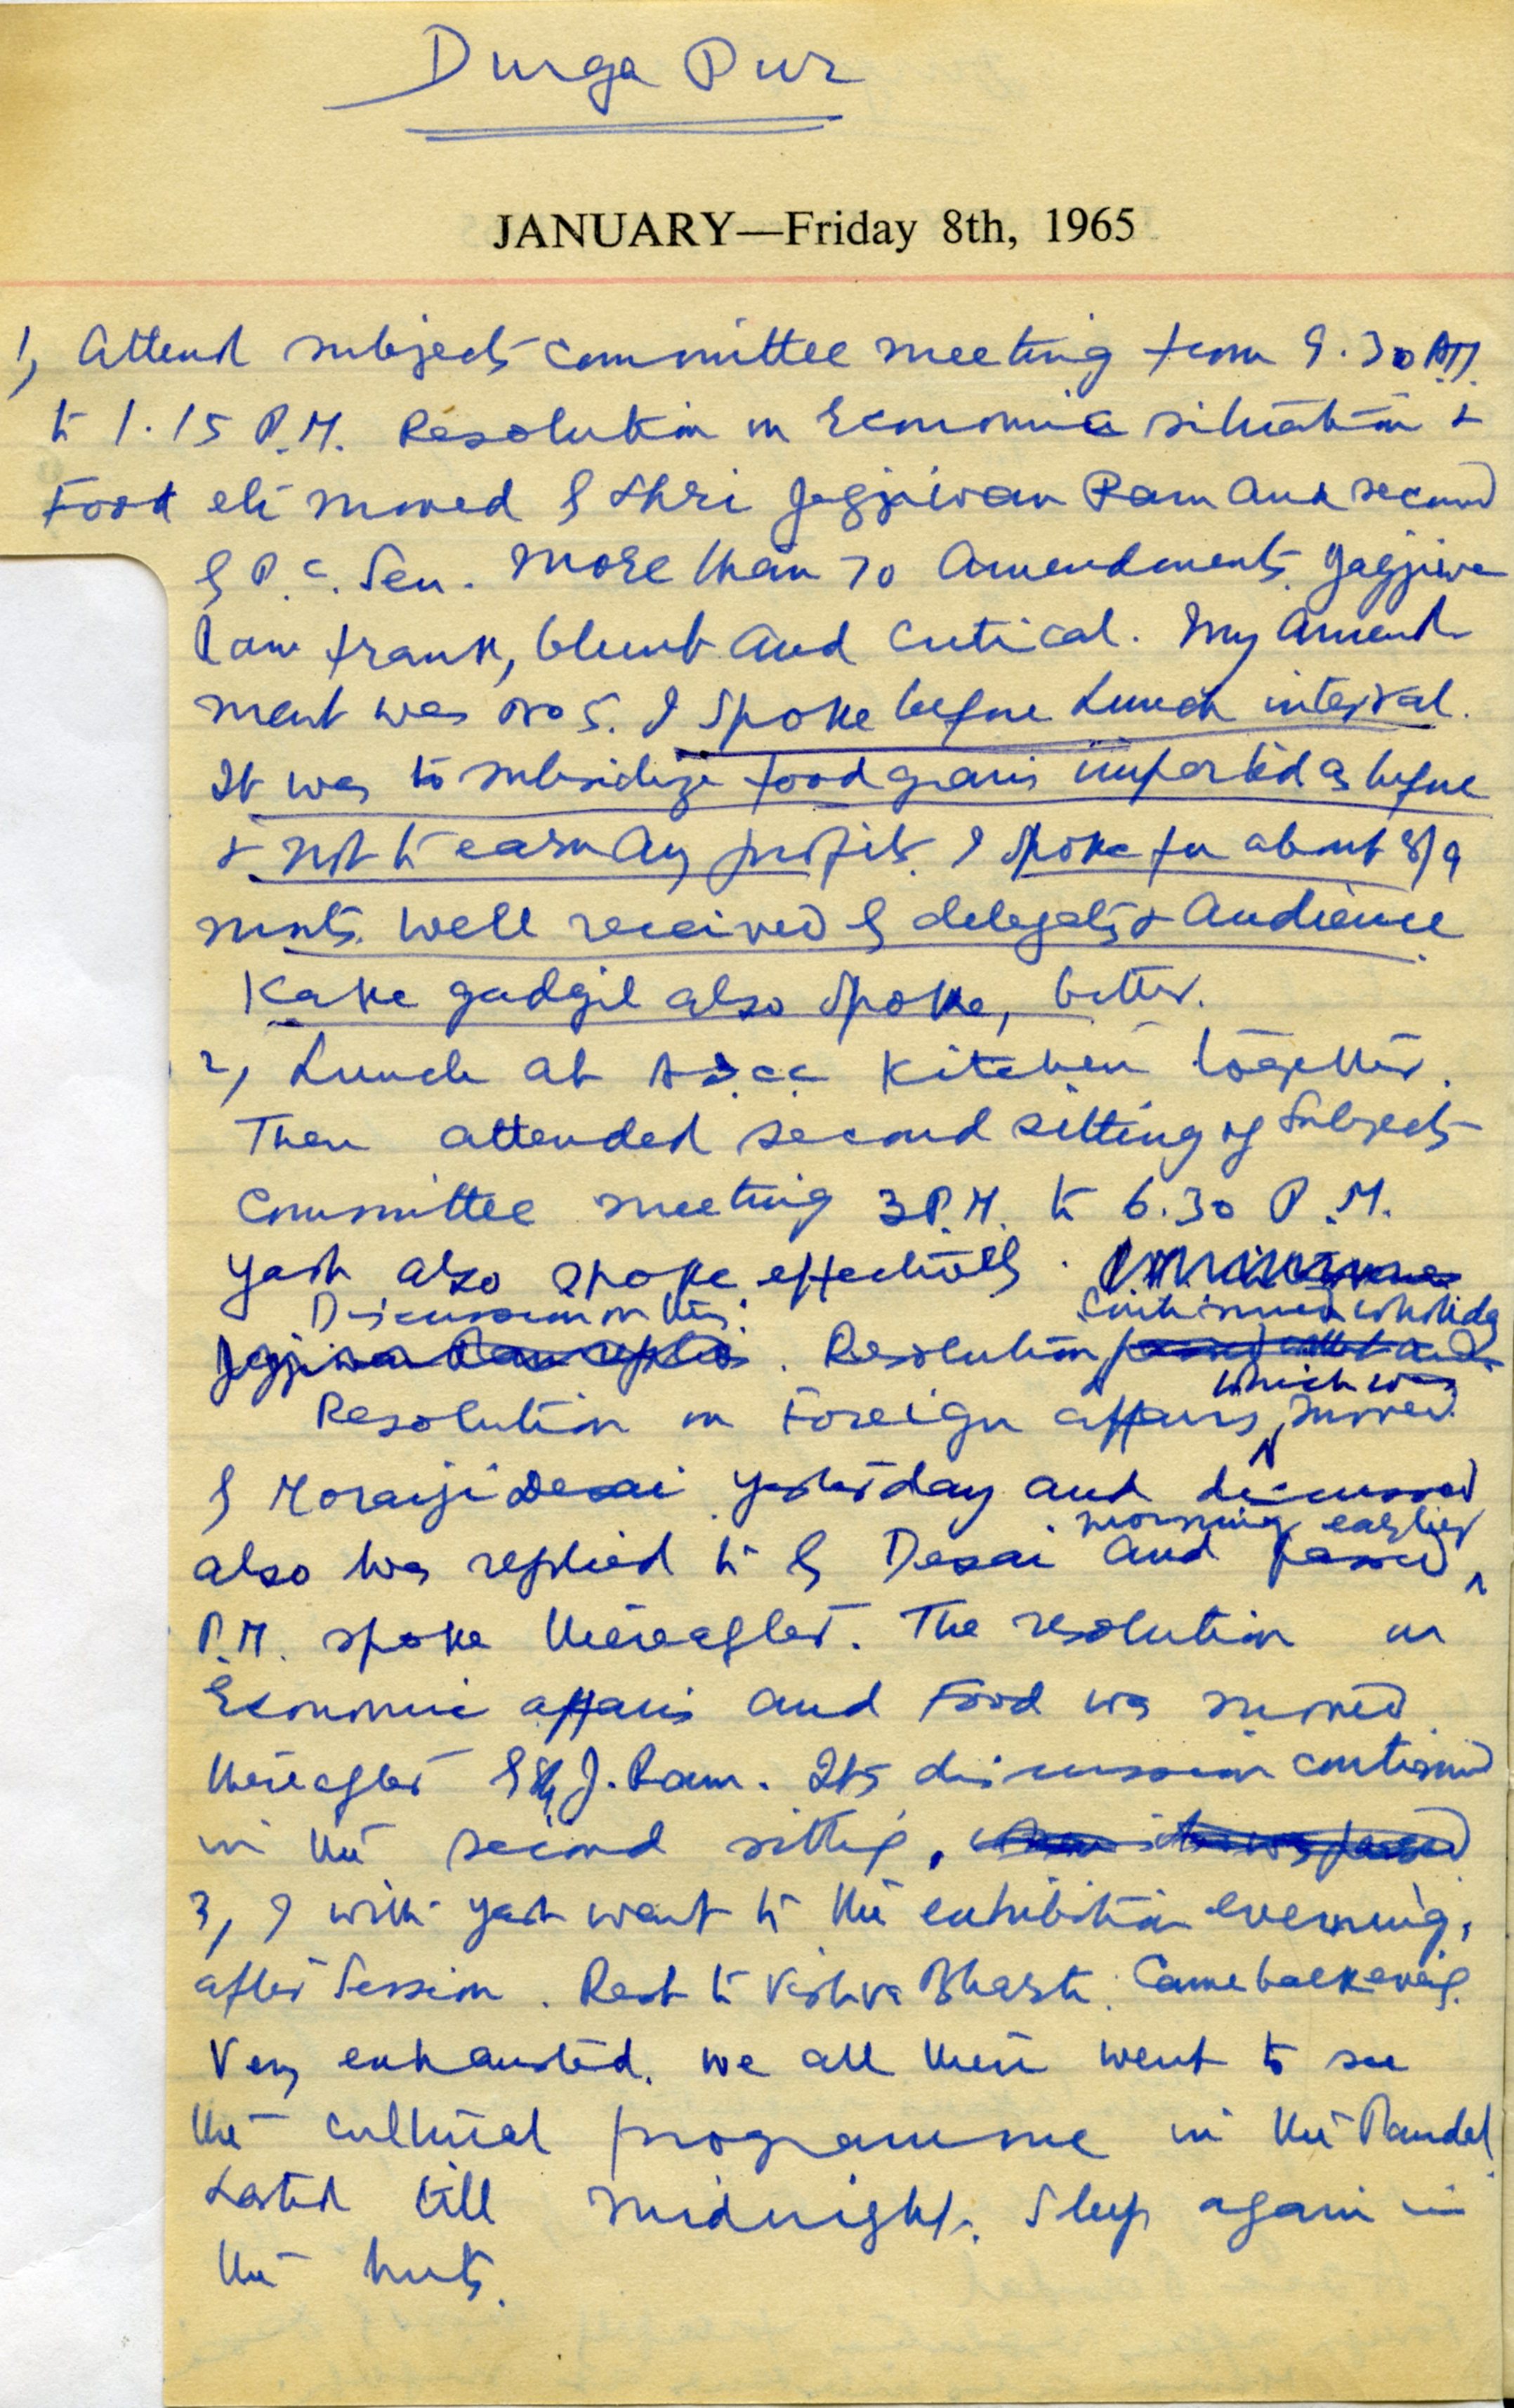 Durga Pur
JANUARY—Friday 8th, 1965
1, Attend subjects committee meeting from 9.30 A.M.
to 1.15 P.M. Resolution on Economic situation &
Food etc moved by Shri Jagjiwan Ram and second
by P.C. Sen. More than 70 Amendments. Jagjiwa
Ram frank, blunt and critical. My Amend-
ment was no 5. I spoke before Lunch interval.
It was to subsidize foodgrains imported as before
& not to earn any profits. I spoke for about 8/9
mnts. Well received by delegates & Audience
Kaka gadgil also spoke, better.
2, Lunch at AICC Kitchen together.
Then attended second sitting of Subjects
Committee meeting 3 P.M. to 6.30 P.M.
Yash also spoke effectively.
Discussion on this continued
Jagjiwan Ram replied. Resolution
which was
Resolution on Foreign affairs, moved
by Morarji Desai yesterday and discussed
morning earlier
also was replied to by Desai and passed
P.M. spoke thereafter. The resolution on
Economic affairs and Food was moved
thereafter by Sh J. Ram. Its discussion continued
in the second sitting,
3, I with Yash went to the exhibition evening,
after Session. Rest to Vishva Bharti. Came back evening.
Very exhausted. We all then went to see
the cultural programme in the Pandal
Lasted till midnight. Sleep again in
the huts.